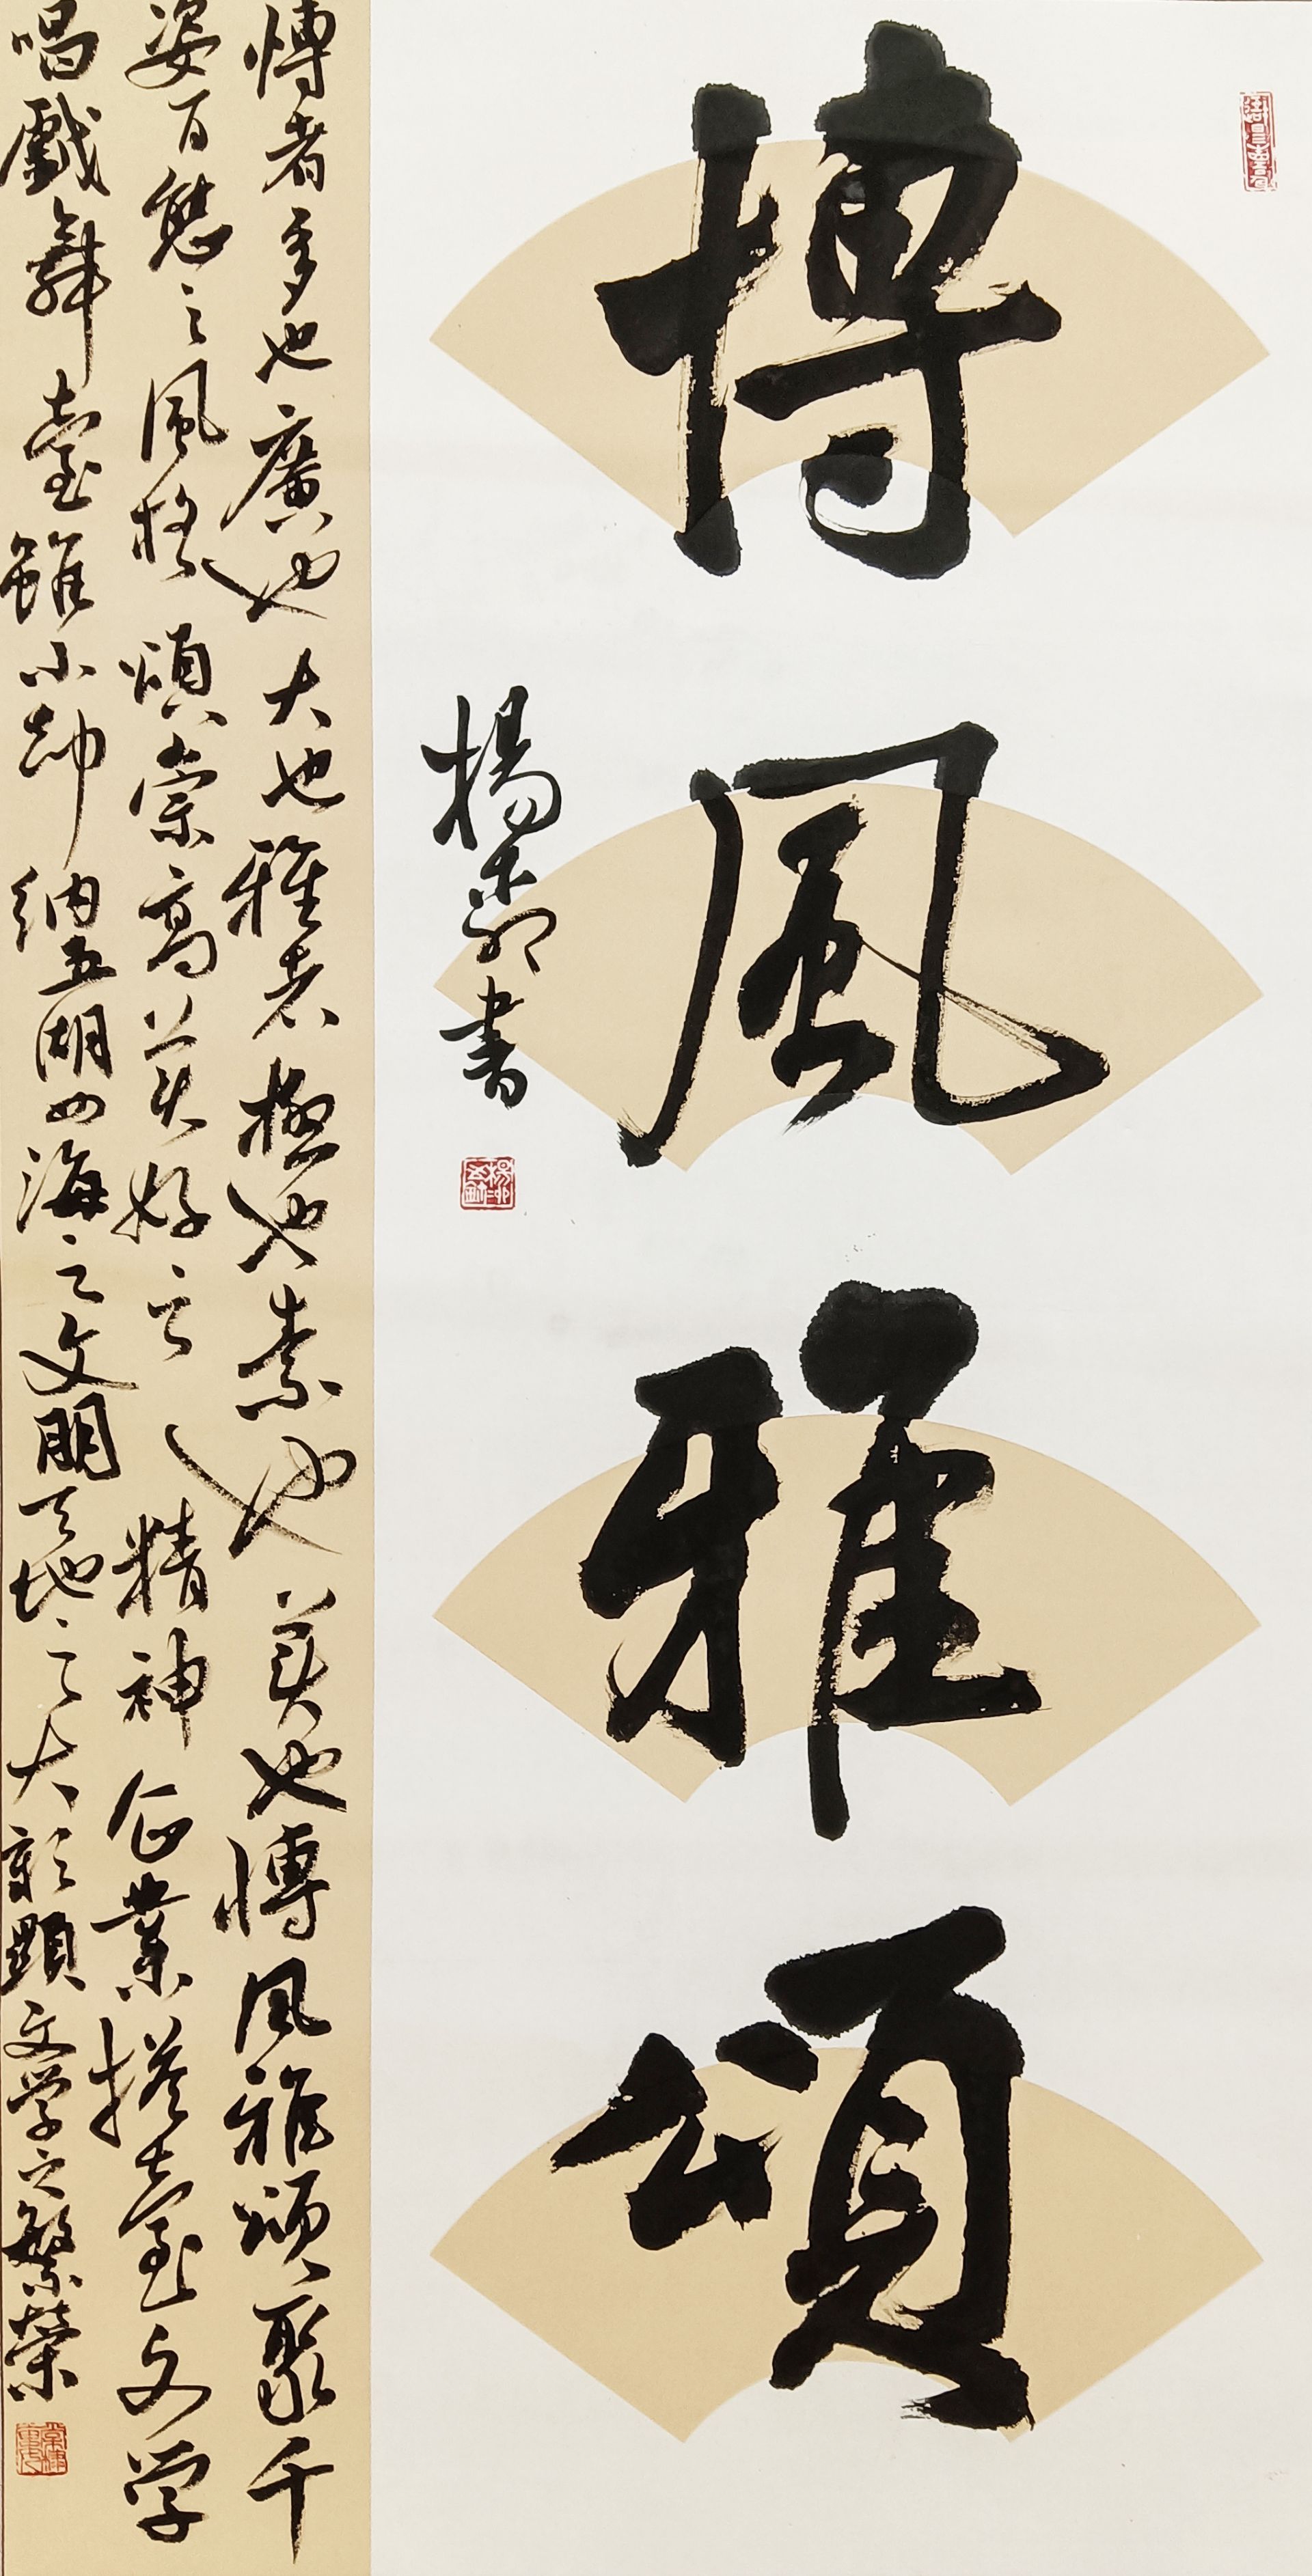 博風雅頌
楊 書
博者多也廣也大也雅者極也素也美也博风雅頌聚千
姿百態之風格頌崇高美好之精神企業搭臺文学
唱戲舞臺雖小却納五湖四海之文明天地之大彰顯文学之繁榮